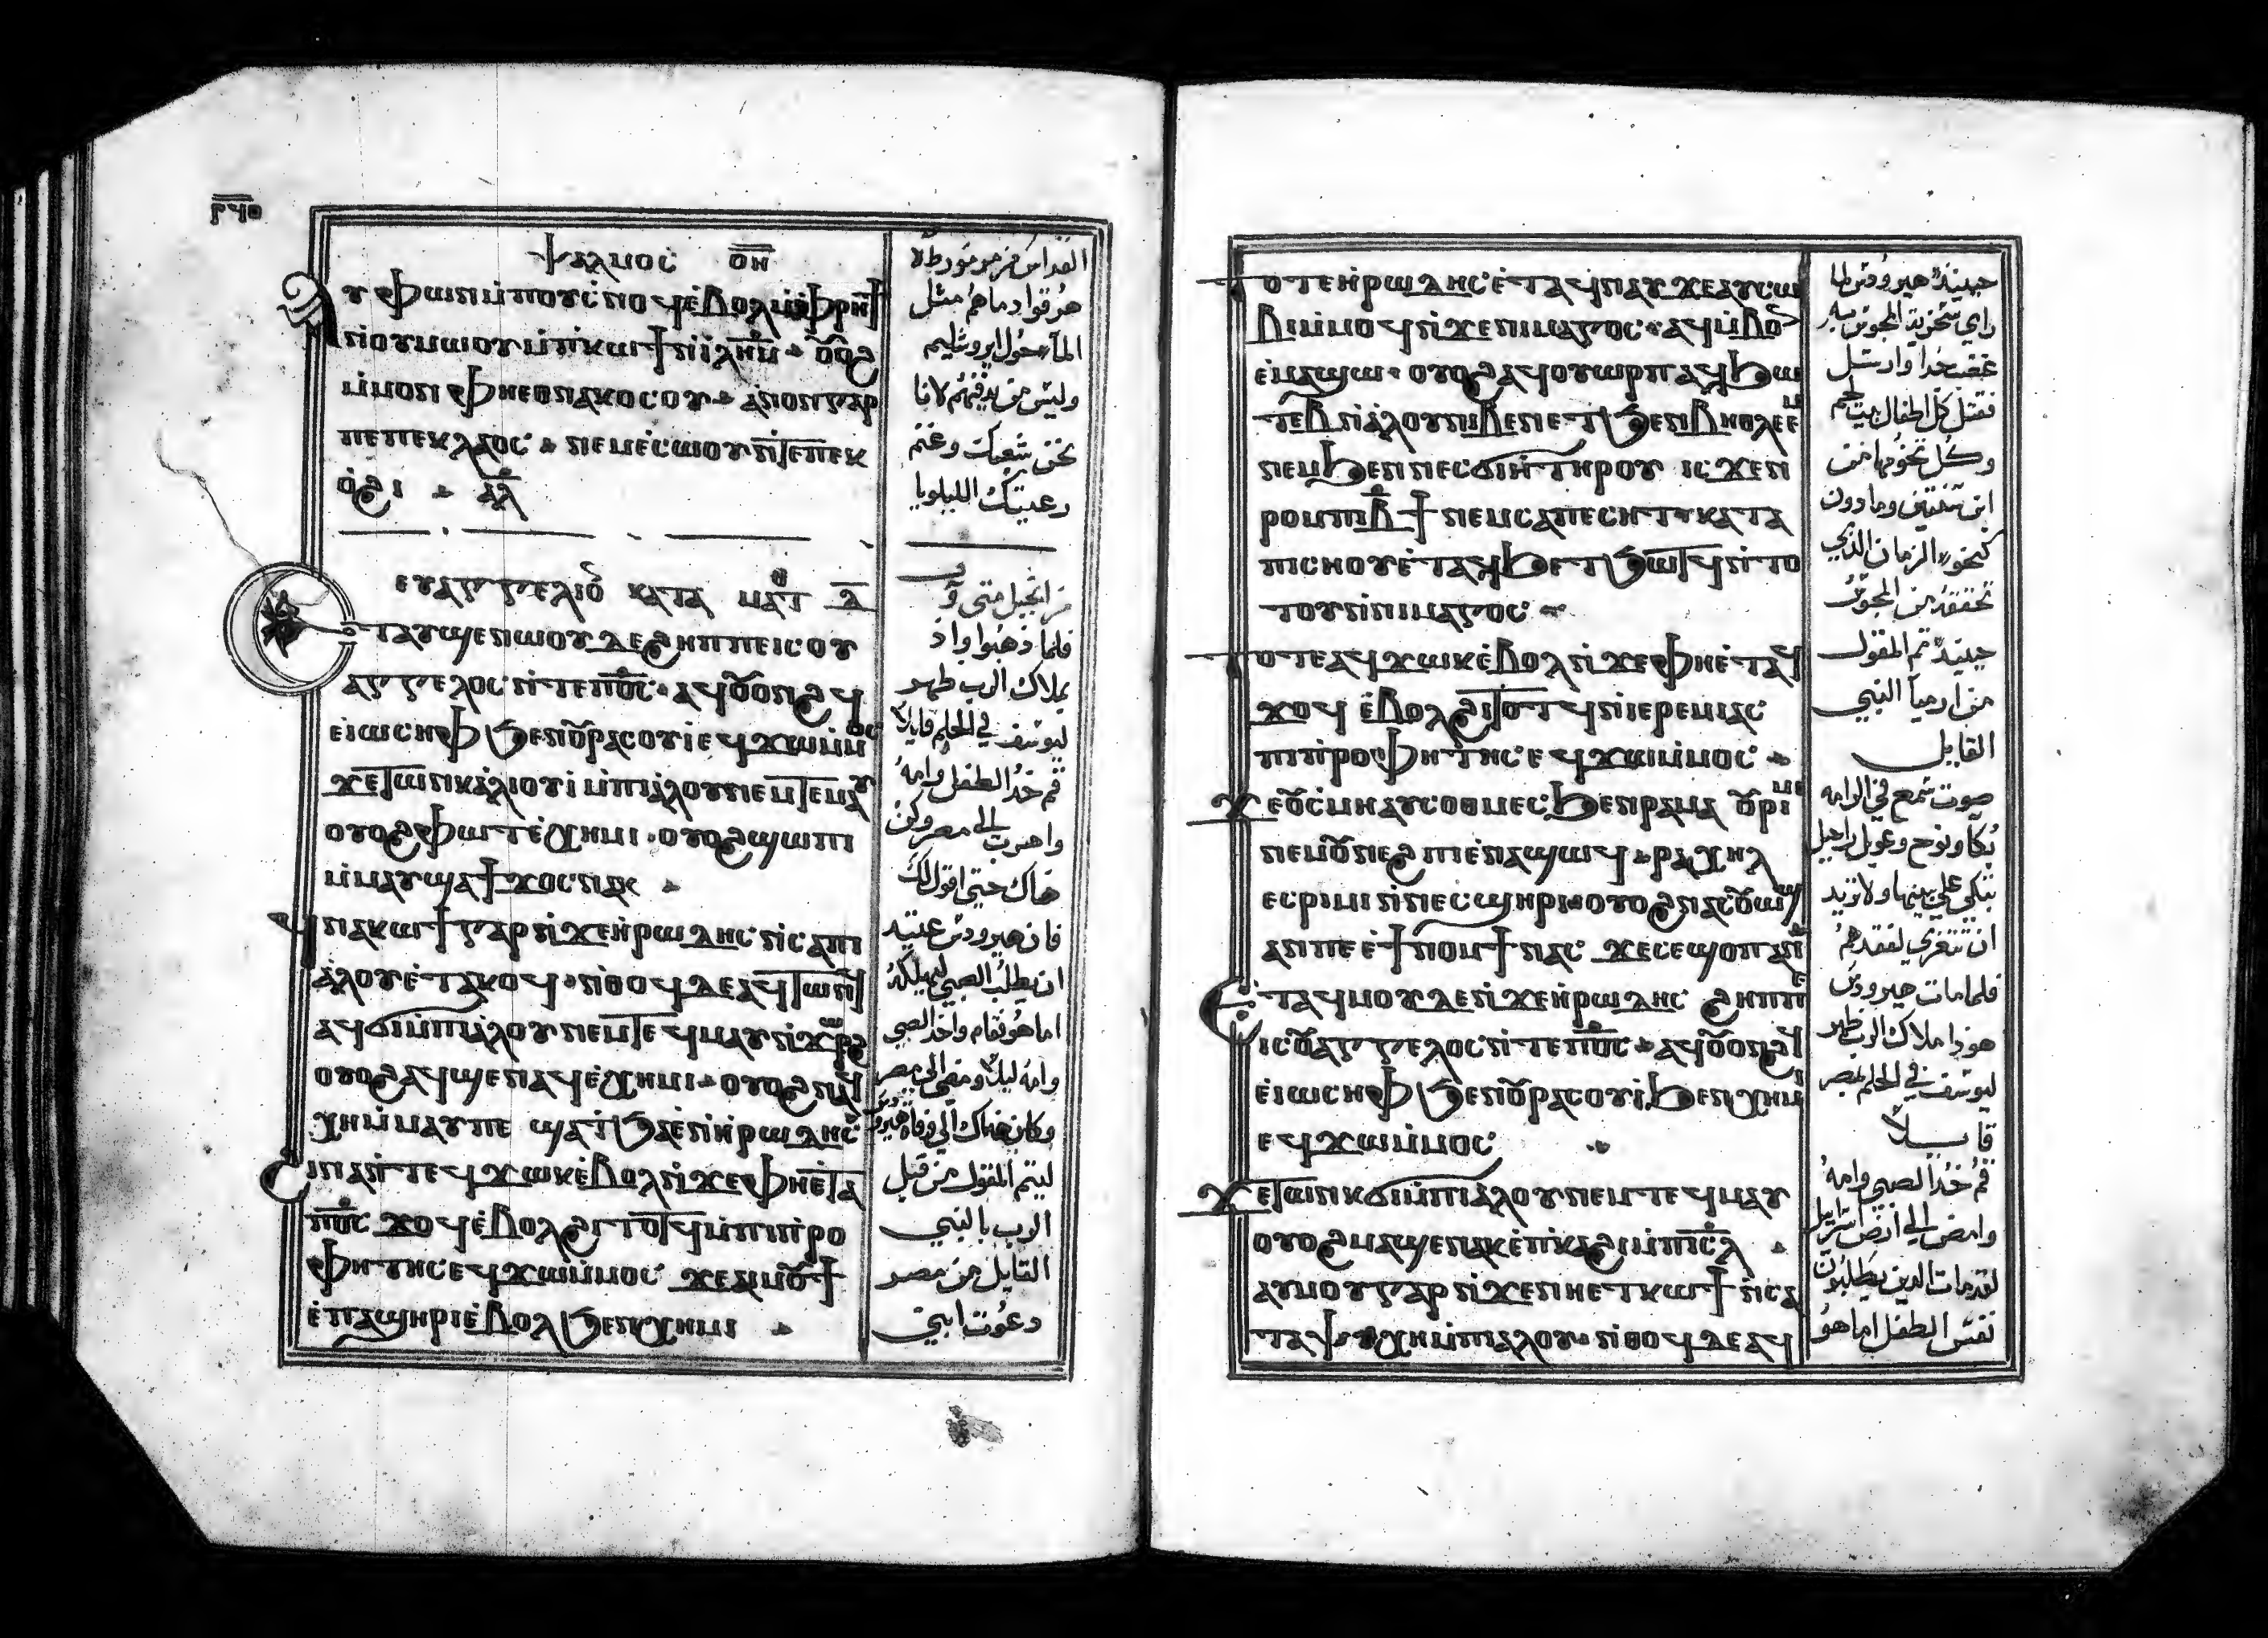 Ⲯⲁⲗⲙⲟⲥ ⲟ̅ⲏ̅
Ⲁⲩⲫⲱⲛ ⲙ̀ⲡⲟⲩⲥ̀ⲛⲟϥ ⲉ̀ⲃⲟⲗ ⲙ̀ⲫⲣⲏϯ
ⲛⲟⲩⲙⲱⲟⲩ ⲙ̀ⲡ̀ⲕⲱϯ ⲛ̀ⲓⲗⲏⲙ̅ · ⲟⲩⲟϩ
ⲙ̀ⲙⲟⲛ ⲫⲏⲉⲑⲛⲁⲕⲟⲥⲟⲩ · ⲁⲛⲟⲛ ⲅⲁⲣ
ⲡⲉ ⲡⲉⲕⲗⲁⲟⲥ · ⲛⲉⲙ ⲉ̀ⲥⲱⲟⲩ ⲛ̀ⲧⲉ ⲡⲉⲕ
ⲟ̀ϩⲓ · ⲁⲗ
ⲉⲩⲁⲅⲅⲉⲗⲓⲟ ⲕⲁⲧⲁ ⲙⲁⲧ ⲇ̅
Ⲉⲧⲁⲩϣⲉⲛⲱⲟⲩ ⲇⲉ ϩⲏⲡⲡⲉ ⲓⲥ ⲟⲩ
ⲁⲅⲅⲉⲗⲟⲥ ⲛ̀ⲧⲉ ⲡ̅ⲟ̅ⲥ̅ · ⲁϥⲟⲩⲟⲛϩϥ
ⲉ̀ⲓⲱⲥⲏⲫ ϧⲉⲛ ⲟⲩⲣⲁⲥⲟⲩⲓ ⲉϥϫⲱ ⲙ̀ⲙⲟⲥ
ϫⲉ ⲧⲱⲛⲕ ⲁ̀ⲗⲓⲟⲩⲓ ⲙ̀ⲡⲓⲁ̀ⲗⲟⲩ ⲛⲉⲙ ⲧⲉϥⲙⲁⲩ
ⲟⲩⲟϩ ⲫⲱⲧ ⲉ̀ⲭⲏⲙⲓ · ⲟⲩⲟϩ ϣⲱⲡⲓ
ⲙ̀ⲙⲁⲩ ϣⲁϯϫⲟⲥ ⲛⲁⲕ ·
Ϥⲛⲁⲕⲱϯ ⲅⲁⲣ ⲛ̀ϫⲉ ⲏ̀ⲣⲱⲇⲏⲥ ⲛ̀ⲥⲁ ⲡⲓ
ⲁ̀ⲗⲟⲩ ⲉ̀ⲧⲁⲕⲟϥ · ⲛ̀ⲑⲟϥ ⲇⲉ ⲁϥⲧⲱⲛϥ
ⲁϥϭⲓ ⲙ̀ⲡⲓⲁ̀ⲗⲟⲩ ⲛⲉⲙ ⲧⲉϥⲙⲁⲩ ⲛ̀ϫⲱⲣϩ
ⲟⲩⲟϩ ⲁϥϣⲉⲛⲁϥ ⲉ̀ⲭⲏⲙⲓ · ⲟⲩⲟϩ ⲛⲁϥ
ⲭⲏ ⲙ̀ⲙⲁⲩ ⲡⲉ ϣⲁ ⲧ̀ϧⲁⲉ̀ ⲛ̀ⲏ̀ⲣⲱⲇⲏⲥ
Ϩⲓⲛⲁ ⲛ̀ⲧⲉϥϫⲱⲕ ⲉ̀ⲃⲟⲗ ⲛ̀ϫⲉ ⲫⲏⲉ̀ⲧⲁ
ⲡ̅ⲟ̅ⲥ̅ ϫⲟϥ ⲉ̀ⲃⲟⲗϩⲓⲧⲟⲧϥ ⲙ̀ⲡⲓⲡ̀ⲣⲟ
ⲫⲏⲧⲏⲥ ⲉϥϫⲱ ⲙ̀ⲙⲟⲥ ϫⲉ ⲁⲓⲙⲟⲩϯ
ⲉ̀ⲡⲁϣⲏⲣⲓ ⲉ̀ⲃⲟⲗ ϧⲉⲛ ⲭⲏⲙⲓ ·
القداس من مزمور
هرقوا دماهم مثل
الماء حول ايروشليم
وليس من يدفنهم لاننا
نحن شعبك وغنم
رعيتك الليلويا
من انجيل متى
فلما ذهبوا واذ
بملاك الرب ظهر
ليوسف في الحلم قايلاً
قم خذ الطفل وامه
واهرب الى مصر وكن
هناك حتى اقول لك
فان هيرودس عتيد
ان يطلب الصبي ليهلكه
اما هو فقام واخذ الصبي
وامه ليلاً ومضى الى مصر
وكان هناك الى وفاة هيرودس
ليتم المقول من قبل
الرب بالنبي
القايل من مصر
دعوت ابني
Ⲧⲟⲧⲉ ⲏ̀ⲣⲱⲇⲏⲥ ⲉ̀ⲧⲁϥⲛⲁⲩ ϫⲉ ⲁⲩⲥⲱ
ⲃⲓ ⲙ̀ⲙⲟϥ ⲛ̀ϫⲉ ⲛⲓⲙⲁⲅⲟⲥ · ⲁϥⲙ̀ⲃⲟⲛ
ⲉ̀ⲙⲁϣⲱ · ⲟⲩⲟϩ ⲁϥⲟⲩⲱⲣⲡ ⲁϥϧⲱ
ⲧⲉⲃ ⲛ̀ⲁ̀ⲗⲟⲩ ⲛⲓⲃⲉⲛ ⲉⲧϧⲉⲛ ⲃⲏⲑⲗⲉⲉⲙ
ⲛⲉⲙ ϧⲉⲛ ⲛⲉⲥϭⲓⲏ ⲧⲏⲣⲟⲩ ⲓⲥϫⲉⲛ
ⲣⲟⲙⲡⲓ ⲃ̅ϯ ⲛⲉⲙ ⲥⲁⲡⲉⲥⲏⲧ · ⲕⲁⲧⲁ
ⲡⲓⲥⲏⲟⲩ ⲉ̀ⲧⲁϥϧⲉⲧϧⲱⲧϥ ⲛ̀ⲧⲟ
ⲧⲟⲩ ⲛ̀ⲛⲓⲙⲁⲅⲟⲥ ·
Ⲧⲟⲧⲉ ⲁϥϫⲱⲕ ⲉ̀ⲃⲟⲗ ⲛ̀ϫⲉ ⲫⲏⲉ̀ⲧⲁϥ
ϫⲟϥ ⲉ̀ⲃⲟⲗϩⲓⲧⲟⲧϥ ⲛ̀ⲓⲉⲣⲉⲙⲓⲁⲥ
ⲡⲓⲡ̀ⲣⲟⲫⲏⲧⲏⲥ ⲉϥϫⲱ ⲙ̀ⲙⲟⲥ ·
Ϫⲉ ⲟⲩⲥ̀ⲙⲏ ⲁⲩⲥⲟⲑⲙⲉⲥ ϧⲉⲛ ⲣⲁⲙⲁ ⲟⲩⲣⲓⲙⲓ
ⲛⲉⲙ ⲟⲩⲛⲉϩⲡⲓ ⲉ̀ⲛⲁϣⲱϥ · ⲣⲁⲭⲏⲗ
ⲉⲥⲣⲓⲙⲓ ⲛ̀ⲛⲉⲥϣⲏⲣⲓ · ⲟⲩⲟϩ ⲛⲁⲥⲟⲩⲱϣ
ⲁⲛ ⲡⲉ ⲉ̀ϯⲛⲟⲙϯ ⲛⲁⲥ ϫⲉ ⲥⲉϣⲟⲡ ⲁⲛ
Ⲉ̀ⲧⲁϥⲙⲟⲩ ⲇⲉ ⲛ̀ϫⲉ ⲏ̀ⲣⲱⲇⲏⲥ ϩⲏⲡⲡⲉ
ⲓⲥ ⲟⲩⲁⲅⲅⲉⲗⲟⲥ ⲛ̀ⲧⲉ ⲡ̅ⲟ̅ⲥ̅ · ⲁϥⲟⲩⲟⲛϩϥ
ⲉ̀ⲓⲱⲥⲏⲫ ϧⲉⲛ ⲟⲩⲣⲁⲥⲟⲩⲓ̀ ϧⲉⲛ ⲭⲏⲙⲓ
ⲉϥϫⲱ ⲙ̀ⲙⲟⲥ ·
Ϫⲉ ⲧⲱⲛⲕ ϭⲓ ⲙ̀ⲡⲓⲁⲗⲟⲩ ⲛⲉⲙ ⲧⲉϥⲙⲁⲩ
ⲟⲩⲟϩ ⲙⲁϣⲉⲛⲁⲕ ⲉ̀ⲡ̀ⲕⲁϩⲓ ⲙ̀ⲡⲓⲥ̅ⲗ̅ ·
ⲁⲩⲙⲟⲩ ⲅⲁⲣ ⲛ̀ϫⲉ ⲛⲏⲉⲧⲕⲱϯ ⲛ̀ⲥⲁ
ⲧⲁⲯⲩⲭⲏ ⲙ̀ⲡⲓⲁⲗⲟⲩ · ⲛ̀ⲑⲟϥ ⲇⲉ ⲁϥ
حينيذ هيرودس لما
راي سخرية المجوس به
غضب جدا وارسل
فقتل كل اطفال بيت لحم
وكل تخومها من
ابن سنتين وما دون
كنحو الزمان الذي
تحققه من المجوس
حينيذ تم المقول
من ارميا النبي
القايل
صوت سمع في الرامه
بكا ونوح وعويل راحيل
تبكي على بنيها ولا تريد
ان تتعزي لفقدهم
فلما مات هيرودس
هوذا ملاك الرب ظهر
ليوسف في الحلم بمصر
قايلاً
قم خذ الصبي وامه
وامض الى ارض اسراييل
لقد مات الذين يطلبون
نفس الطفل اما هو